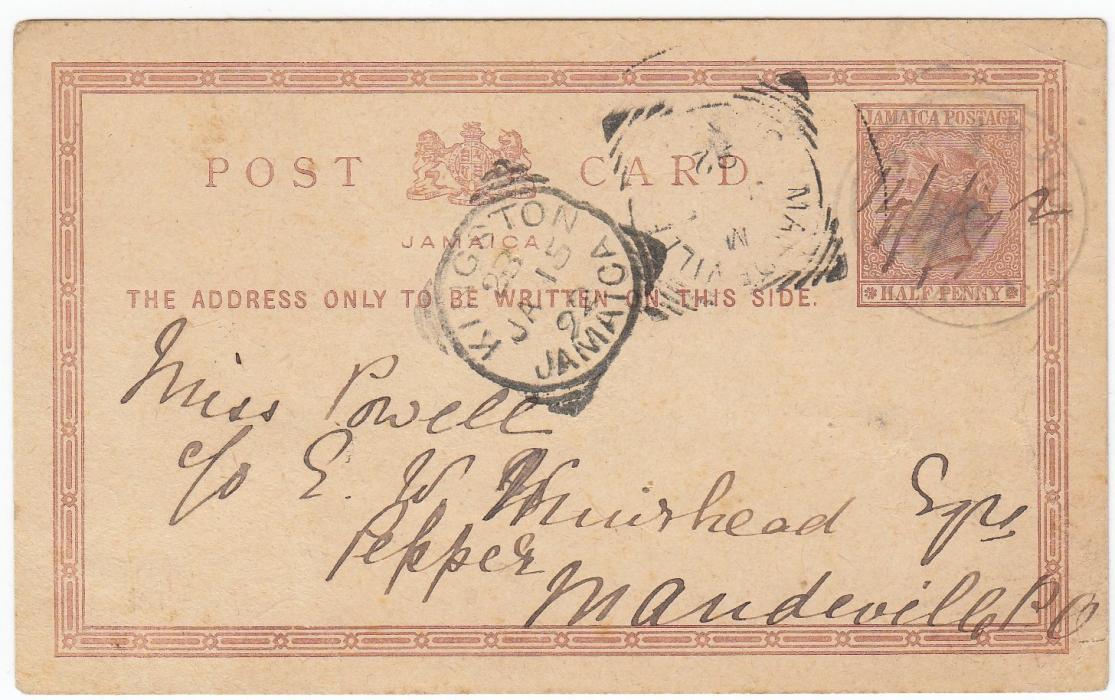 JAMAICA POSTAGE
POST CARD
JAMAICA
HALF PENNY
THE ADDRESS ONLY TO BE WRITTEN ON THIS SIDE.
KINGSTON
JA 15
92
JAMAICA
Miss Powell
c/o E. W. Muirhead Eqrs
Pepper
Mandeville P.O